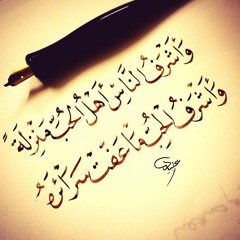 وَأَشْرَفُ النَّاسِ أَهْلُ الْحُبِّ مَنْزِلَةً
وَأَشْرَفُ الْحُبِّ مَا عَفَّتْ سَرَائِرُهُ